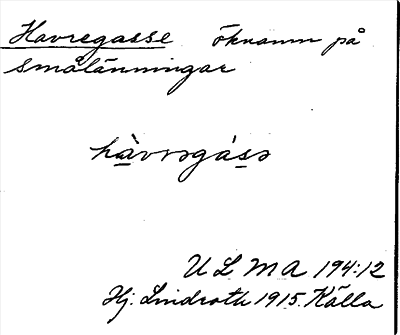 Havregasse öknamn på
smålänningar
hàvrəgás̲ə
U L M A 194:12
Hj. Lindroth 1915. Källa